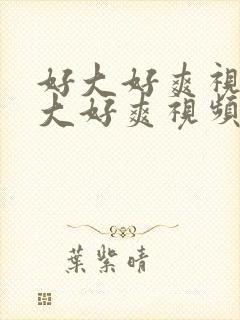 好大好爽視
大好爽視頻
葉紫晴